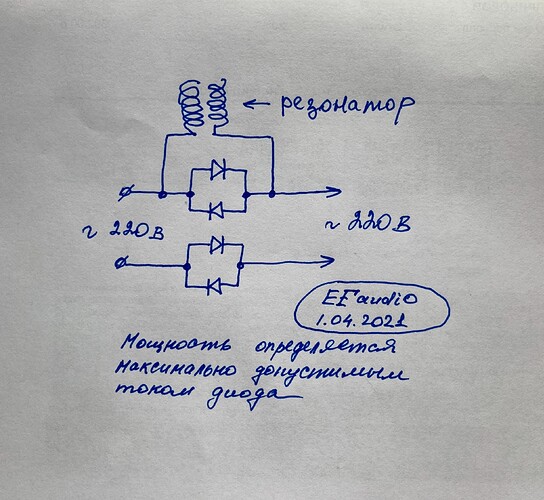 резонатор
~ 220в
~ 220В
EEaudio
1.04.2021
Мощность определяется
максимально допустимым
током диода